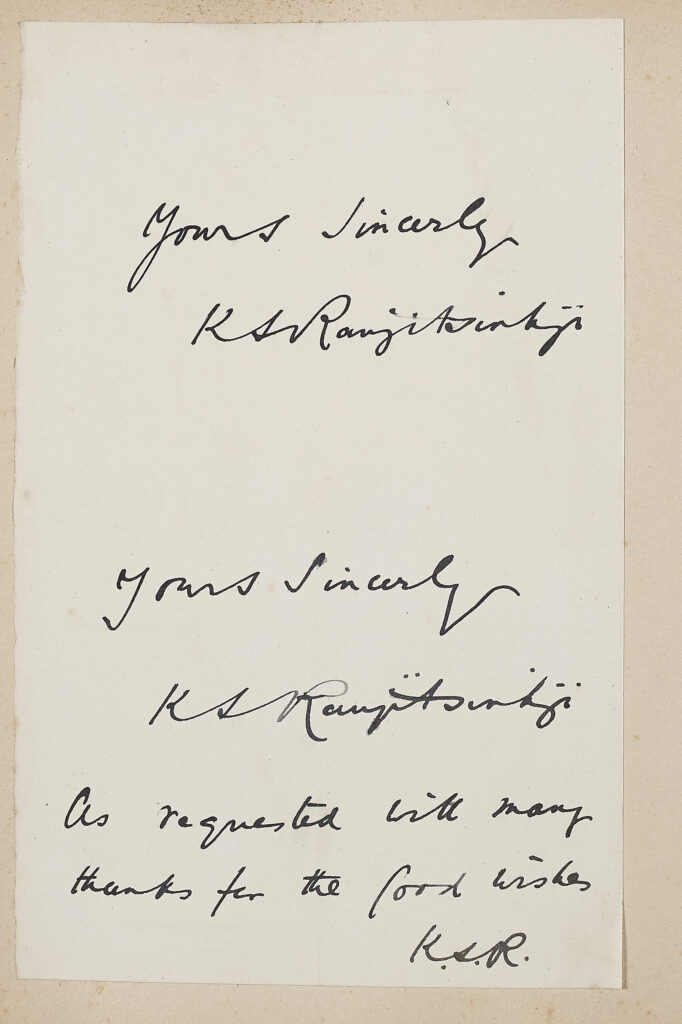 Yours Sincerly
K S Ranjitsinhji
Yours Sincerly
K S Ranjitsinhji
As requested with many
thanks for the Good wishes
K.S.R.